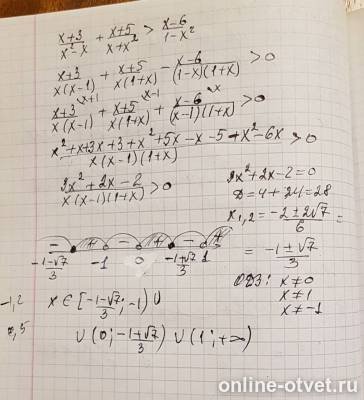 (x+3)/(x²-x) + (x+5)/(x+x²) > (x-6)/(1-x²)
(x+3)/(x(x-1)) + (x+5)/(x(1+x)) - (x-6)/((1-x)(1+x)) > 0
(x+3)/(x(x-1)) \x+1 + (x+5)/(x(1+x)) \x-1 + (x-6)/((x-1)(1+x)) \x > 0
(x²+x+3x+3+x²+5x-x-5+x²-6x)/(x(x-1)(1+x)) > 0
(3x²+2x-2)/(x(x-1)(1+x)) > 0
3x²+2x-2=0
D=4+24=28
x₁,₂ = (-2±2√7)/6 =
= (-1±√7)/3
- + - + - +
(-1-√7)/3 -1 0 (-1+√7)/3 1
ОДЗ: x≠0
x≠1
x≠-1
-1,2 x∈[(-1-√7)/3; -1) ∪
0,5 ∪ (0; (-1+√7)/3) ∪ (1; +∞)
online-otvet.ru